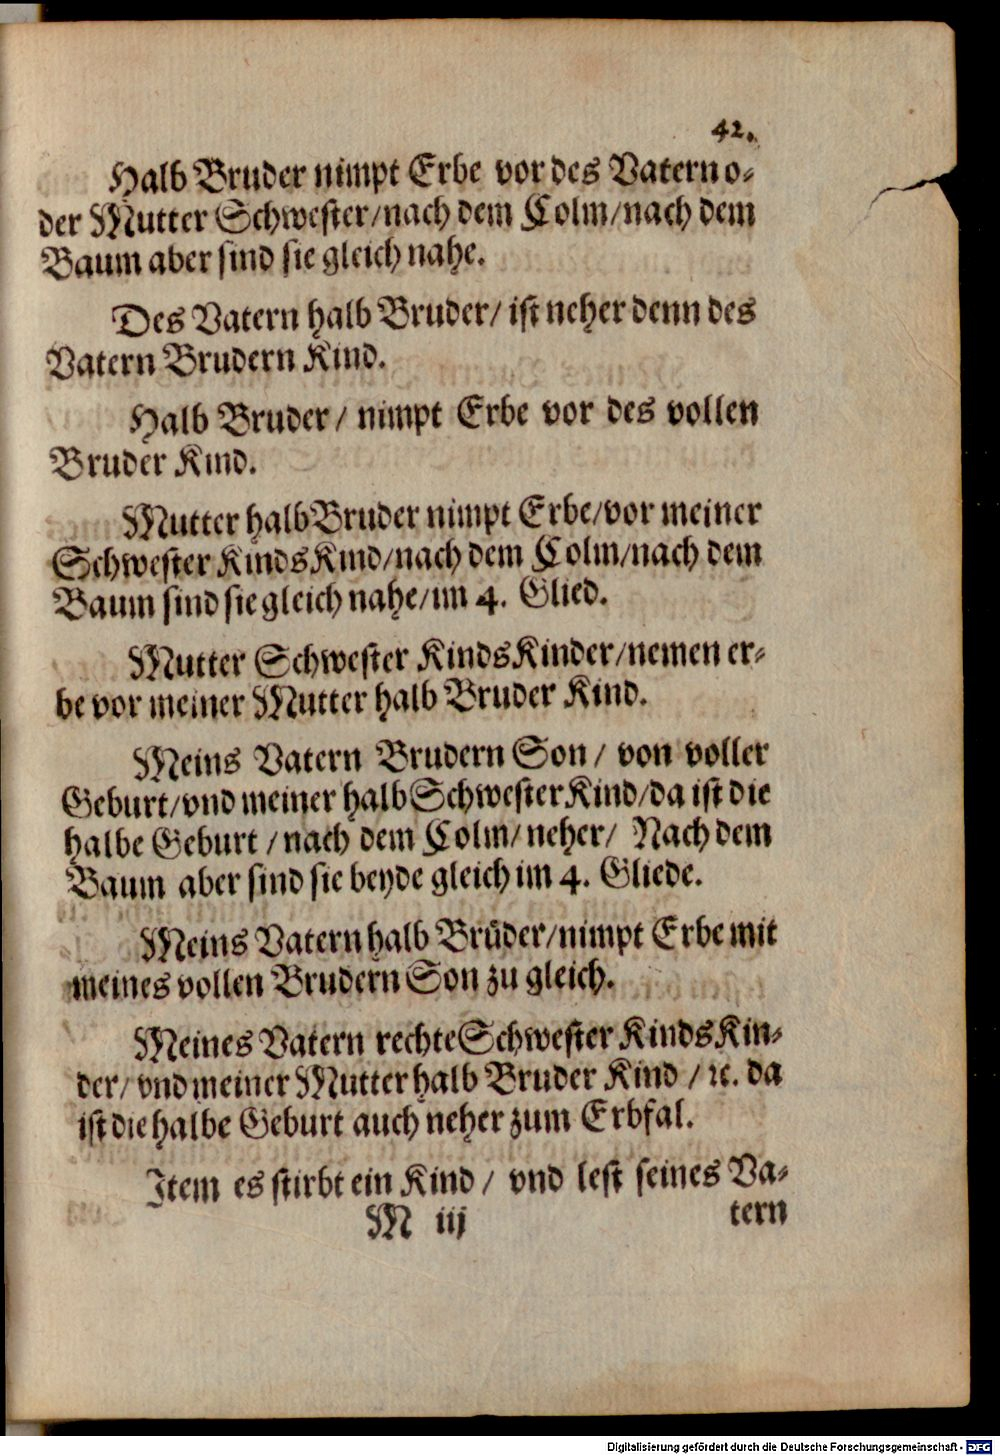 42.
Halb Bruder nimpt Erbe vor des Vatern o-
der Mutter Schwester/nach dem Colm/nach dem
Baum aber sind sie gleich nahe.
Des Vatern halb Bruder/ ist neher denn des
Vatern Brudern Kind.
Halb Bruder/ nimpt Erbe vor des vollen
Bruder Kind.
Mutter halb Bruder nimpt Erbe/vor meiner
Schwester Kinds Kind/nach dem Colm/nach dem
Baum sind sie gleich nahe/im 4. Glied.
Mutter Schwester Kinds Kinder/nemen er-
be vor meiner Mutter halb Bruder Kind.
Meins Vatern Brudern Son/ von voller
Geburt/vnd meiner halb Schwester Kind/da ist die
halbe Geburt /nach dem Colm/ neher/ Nach dem
Baum aber sind sie beyde gleich im 4. Gliede.
Meins Vatern halb Brüder/nimpt Erbe mit
meines vollen Brudern Son zu gleich.
Meines Vatern rechte Schwester Kinds Kin-
der/ vnd meiner Mutter halb Bruder Kind /ꝛc. da
ist die halbe Geburt auch neher zum Erbfal.
Item es stirbt ein Kind/ vnd lest seines Va-
M iij tern
Digitalisierung gefördert durch die Deutsche Forschungsgemeinschaft - DFG